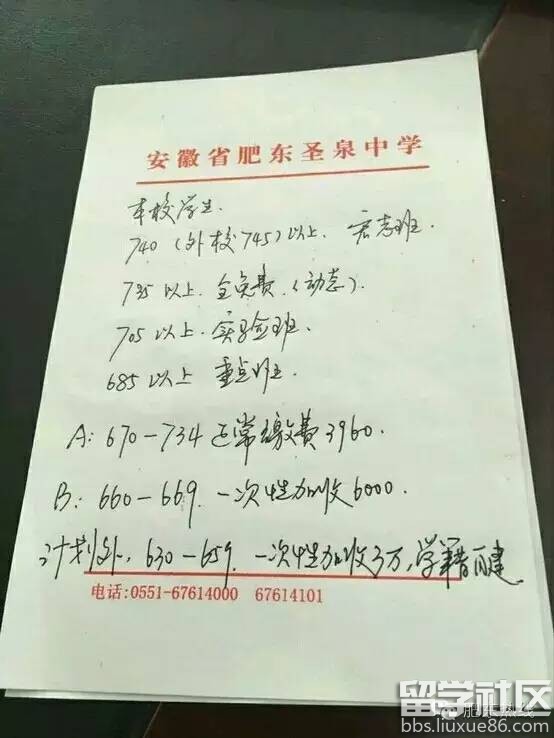 安徽省肥东圣泉中学
本校学生.
740(外校745)以上. 宏志班.
735以上. 全免费.(动态).
705以上. 实验班.
685以上 重点班.
A: 670-734 正常缴费3960.
B: 660-669. 一次性加收6000.
计划外, 630-659. 一次性加收3万, 学籍可建
电话:0551-67614000 67614101
留学社区
肥东热线
bbs.liuxue86.com